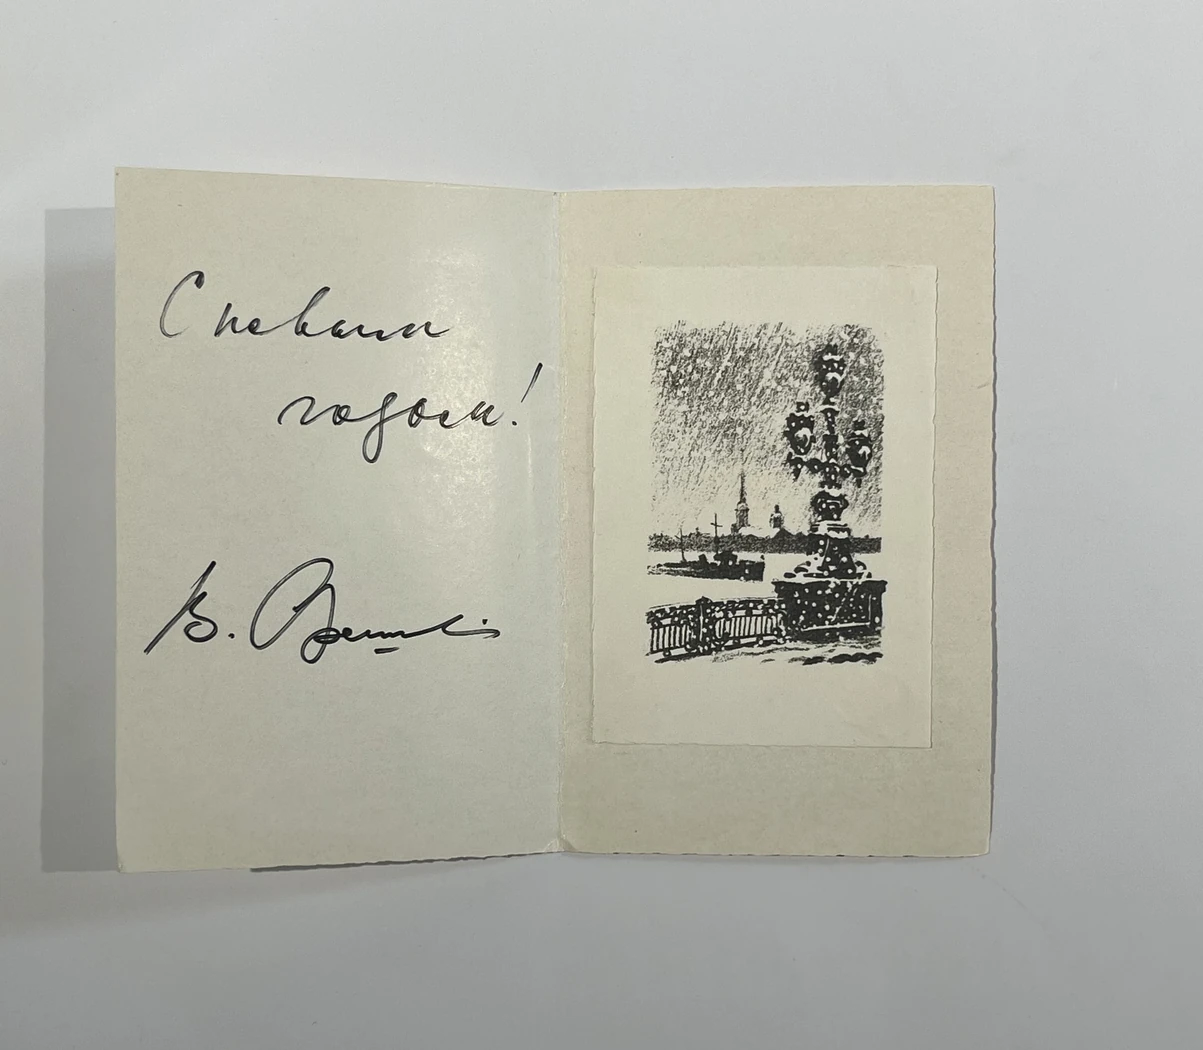 С новым
годом!
В.